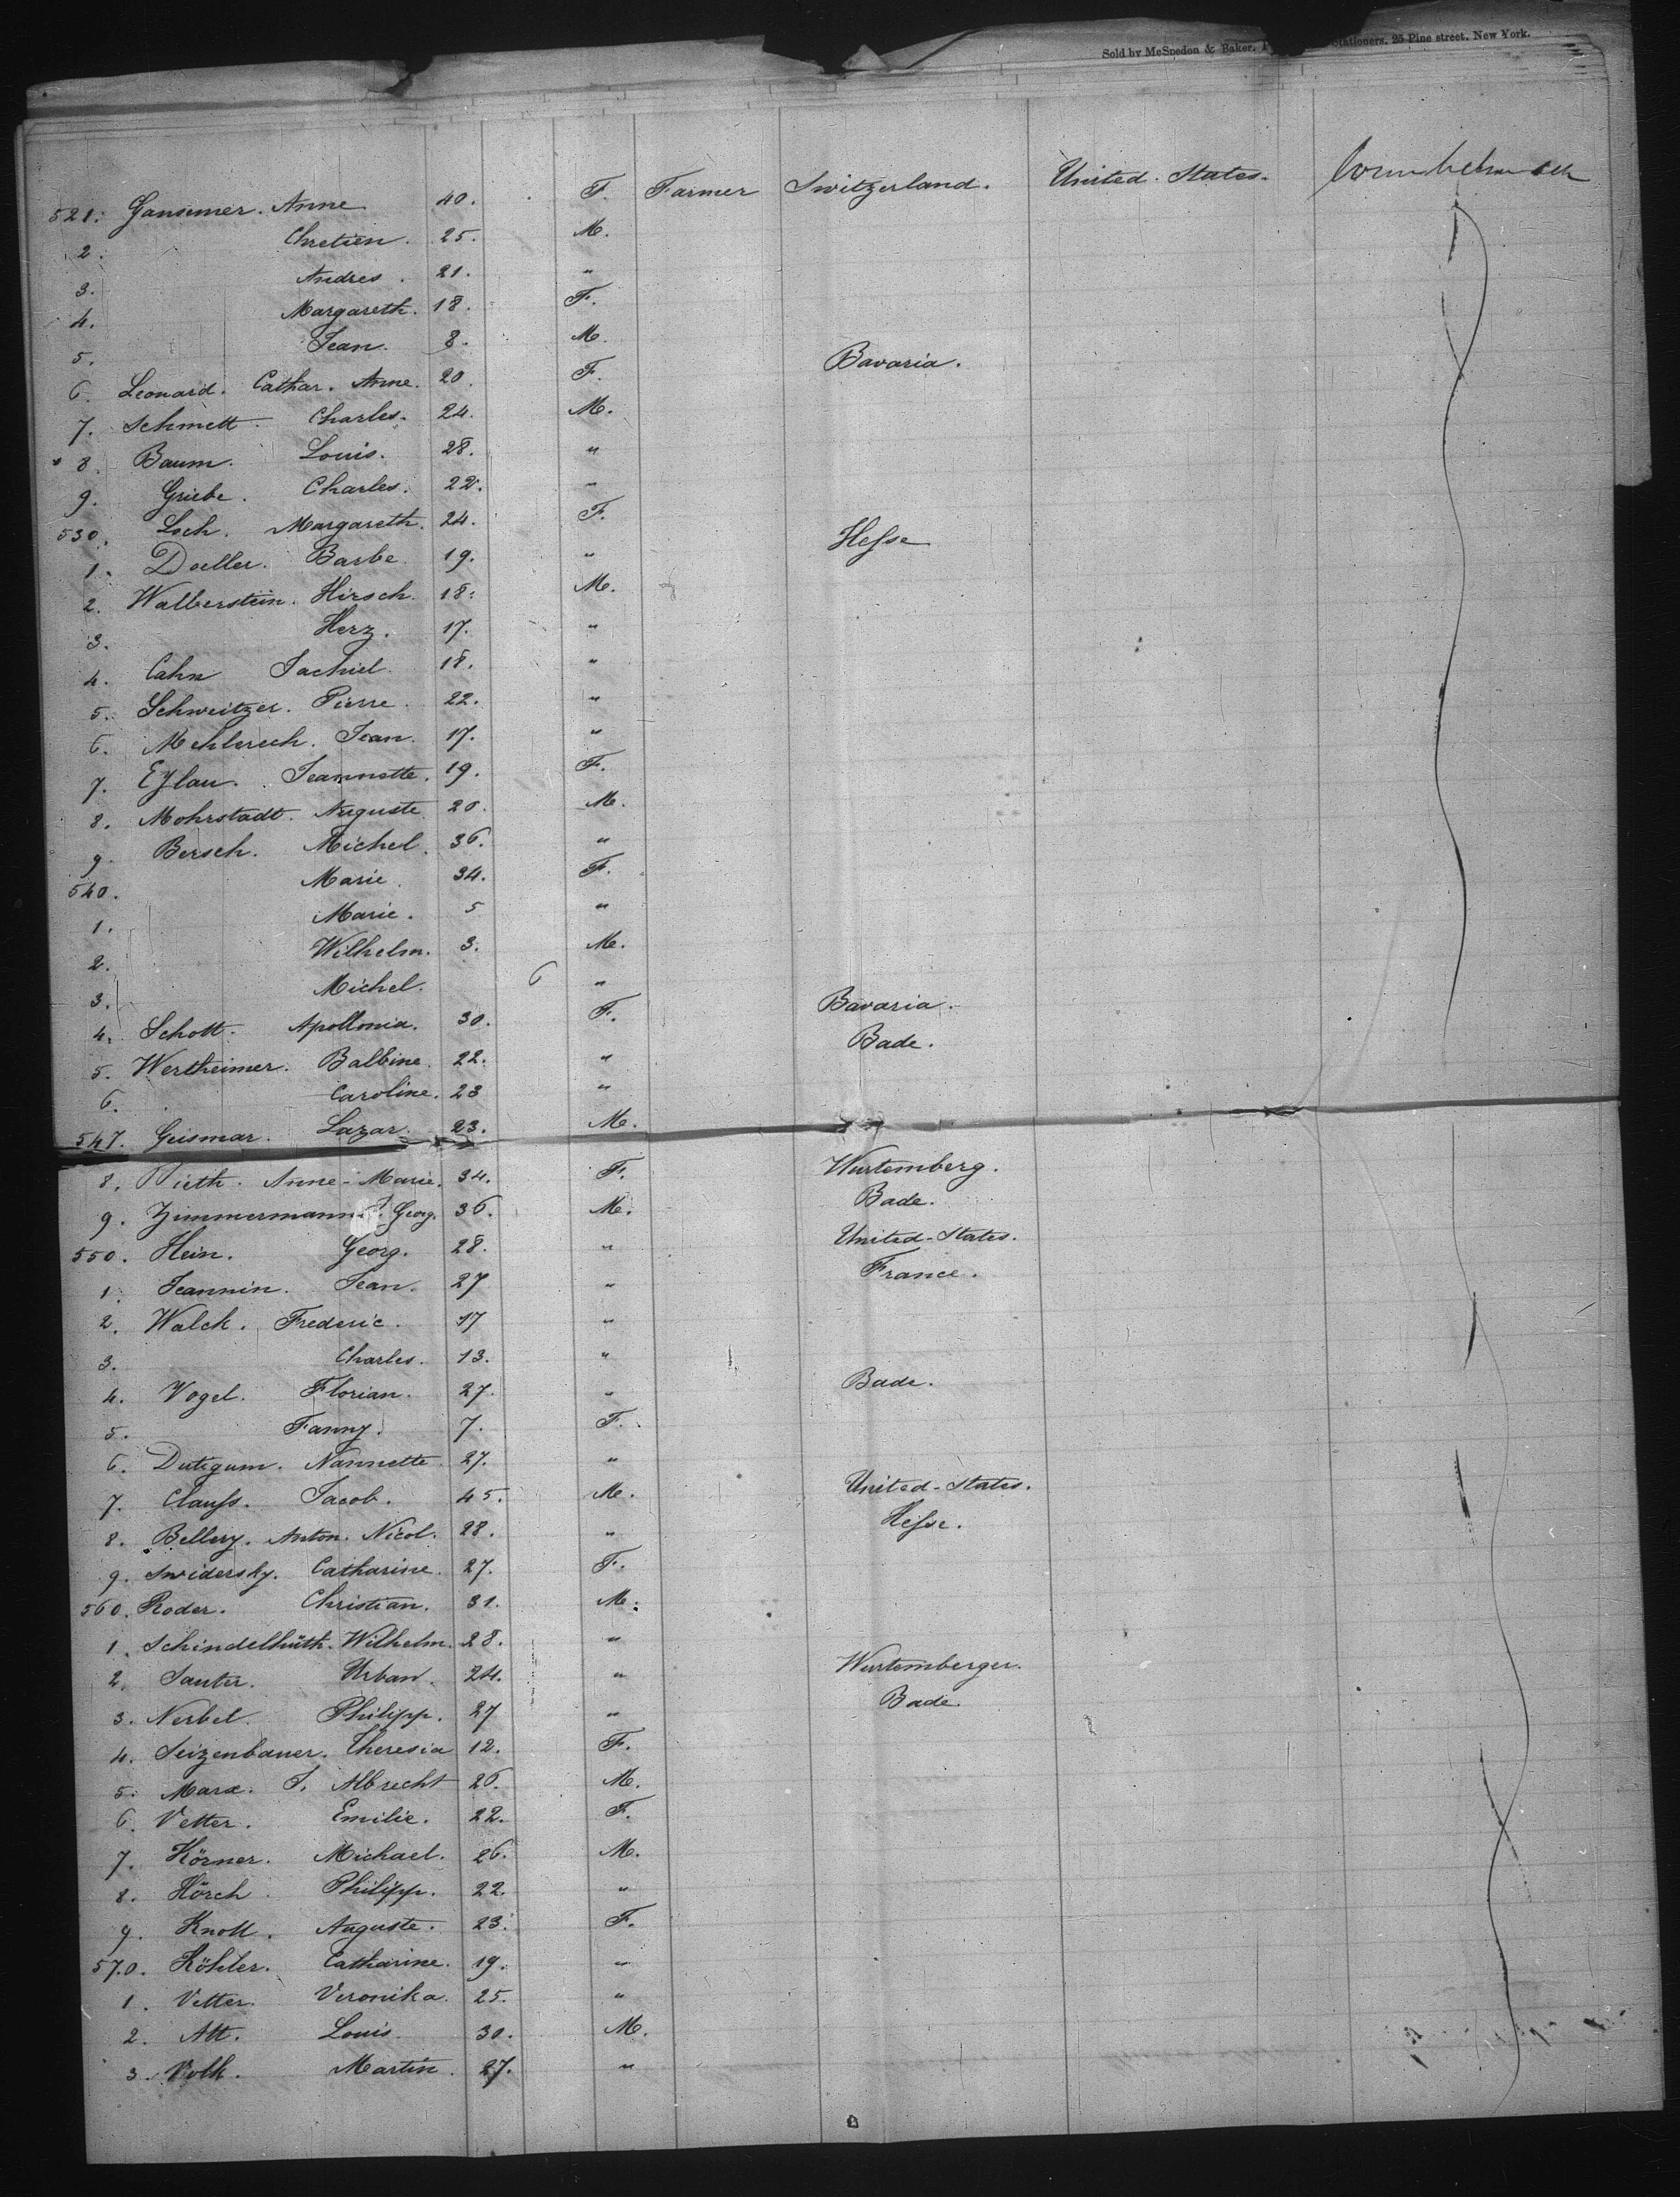 Sold by McSpedon & Baker, Stationers, 25 Pine street, New York.
521. Gansimer. Anne 40. F. Farmer Switzerland. United States.
2. Chretien. 25. M.
3. Andres. 21. "
4. Margareth. 18. F.
5. Jean. 8. M.
6. Leonard. Cathar. Anne. 20. F. Bavaria.
7. Schmett. Charles. 24. M.
8. Baum. Louis. 28. "
9. Griebe. Charles. 22. "
530. Loch. Margareth. 24. F.
1. Doeller. Barbe. 19. " Hesse
2. Walberstein. Hirsch. 18. M.
3. Herz. 17. "
4. Cahn Jachiel. 18. "
5. Schweitzer. Pierre. 22. "
6. Mehlerech. Jean. 17. "
7. Eylau. Jeannette. 19. F.
8. Mohrstadt. Auguste. 20. M.
9. Bersch. Michel. 36. "
540. Marie. 34. F.
1. Marie. 5 "
2. Wilhelm. 3. M.
3. Michel. 6 "
4. Schott. Apollonia. 30. F. Bavaria.
5. Wertheimer. Balbine. 22. " Bade.
6. Caroline. 23 "
547. Geismar. Lazar. 23. M.
8. Rieth. Anne-Marie. 34. F. Wurtemberg.
9. Zimmermann. Georg. 36. M. Bade.
550. Hein. Georg. 28. " United-States.
1. Jeannin. Jean. 27 " France.
2. Walck. Frederic. 17 "
3. Charles. 13. "
4. Vogel. Florian. 27. " Bade.
5. Fanny. 7. F.
6. Dutigum. Nannette. 27. "
7. Clauss. Jacob. 45. M. United-States.
8. Bellery. Anton. Nicol. 28. " Hesse.
9. Swidersky. Catharine. 27. F.
560. Roder. Christian. 31. M.
1. Schindelhüth. Wilhelm. 28. "
2. Sauter. Urban. 24. " Wurtemberger.
3. Nerbel. Philipp. 27 " Bade.
4. Seizenbauer. Theresia 12. F.
5. Marx. J. Albrecht 26. M.
6. Vetter. Emilie. 22. F.
7. Körner. Michael. 26. M.
8. Hörch. Philipp. 22. "
9. Knoll. Auguste. 23. F.
570. Köhler. Catharine. 19. "
1. Vetter. Veronika. 25. "
2. Alt. Louis. 30. M.
3. Volk. Martin. 27. "